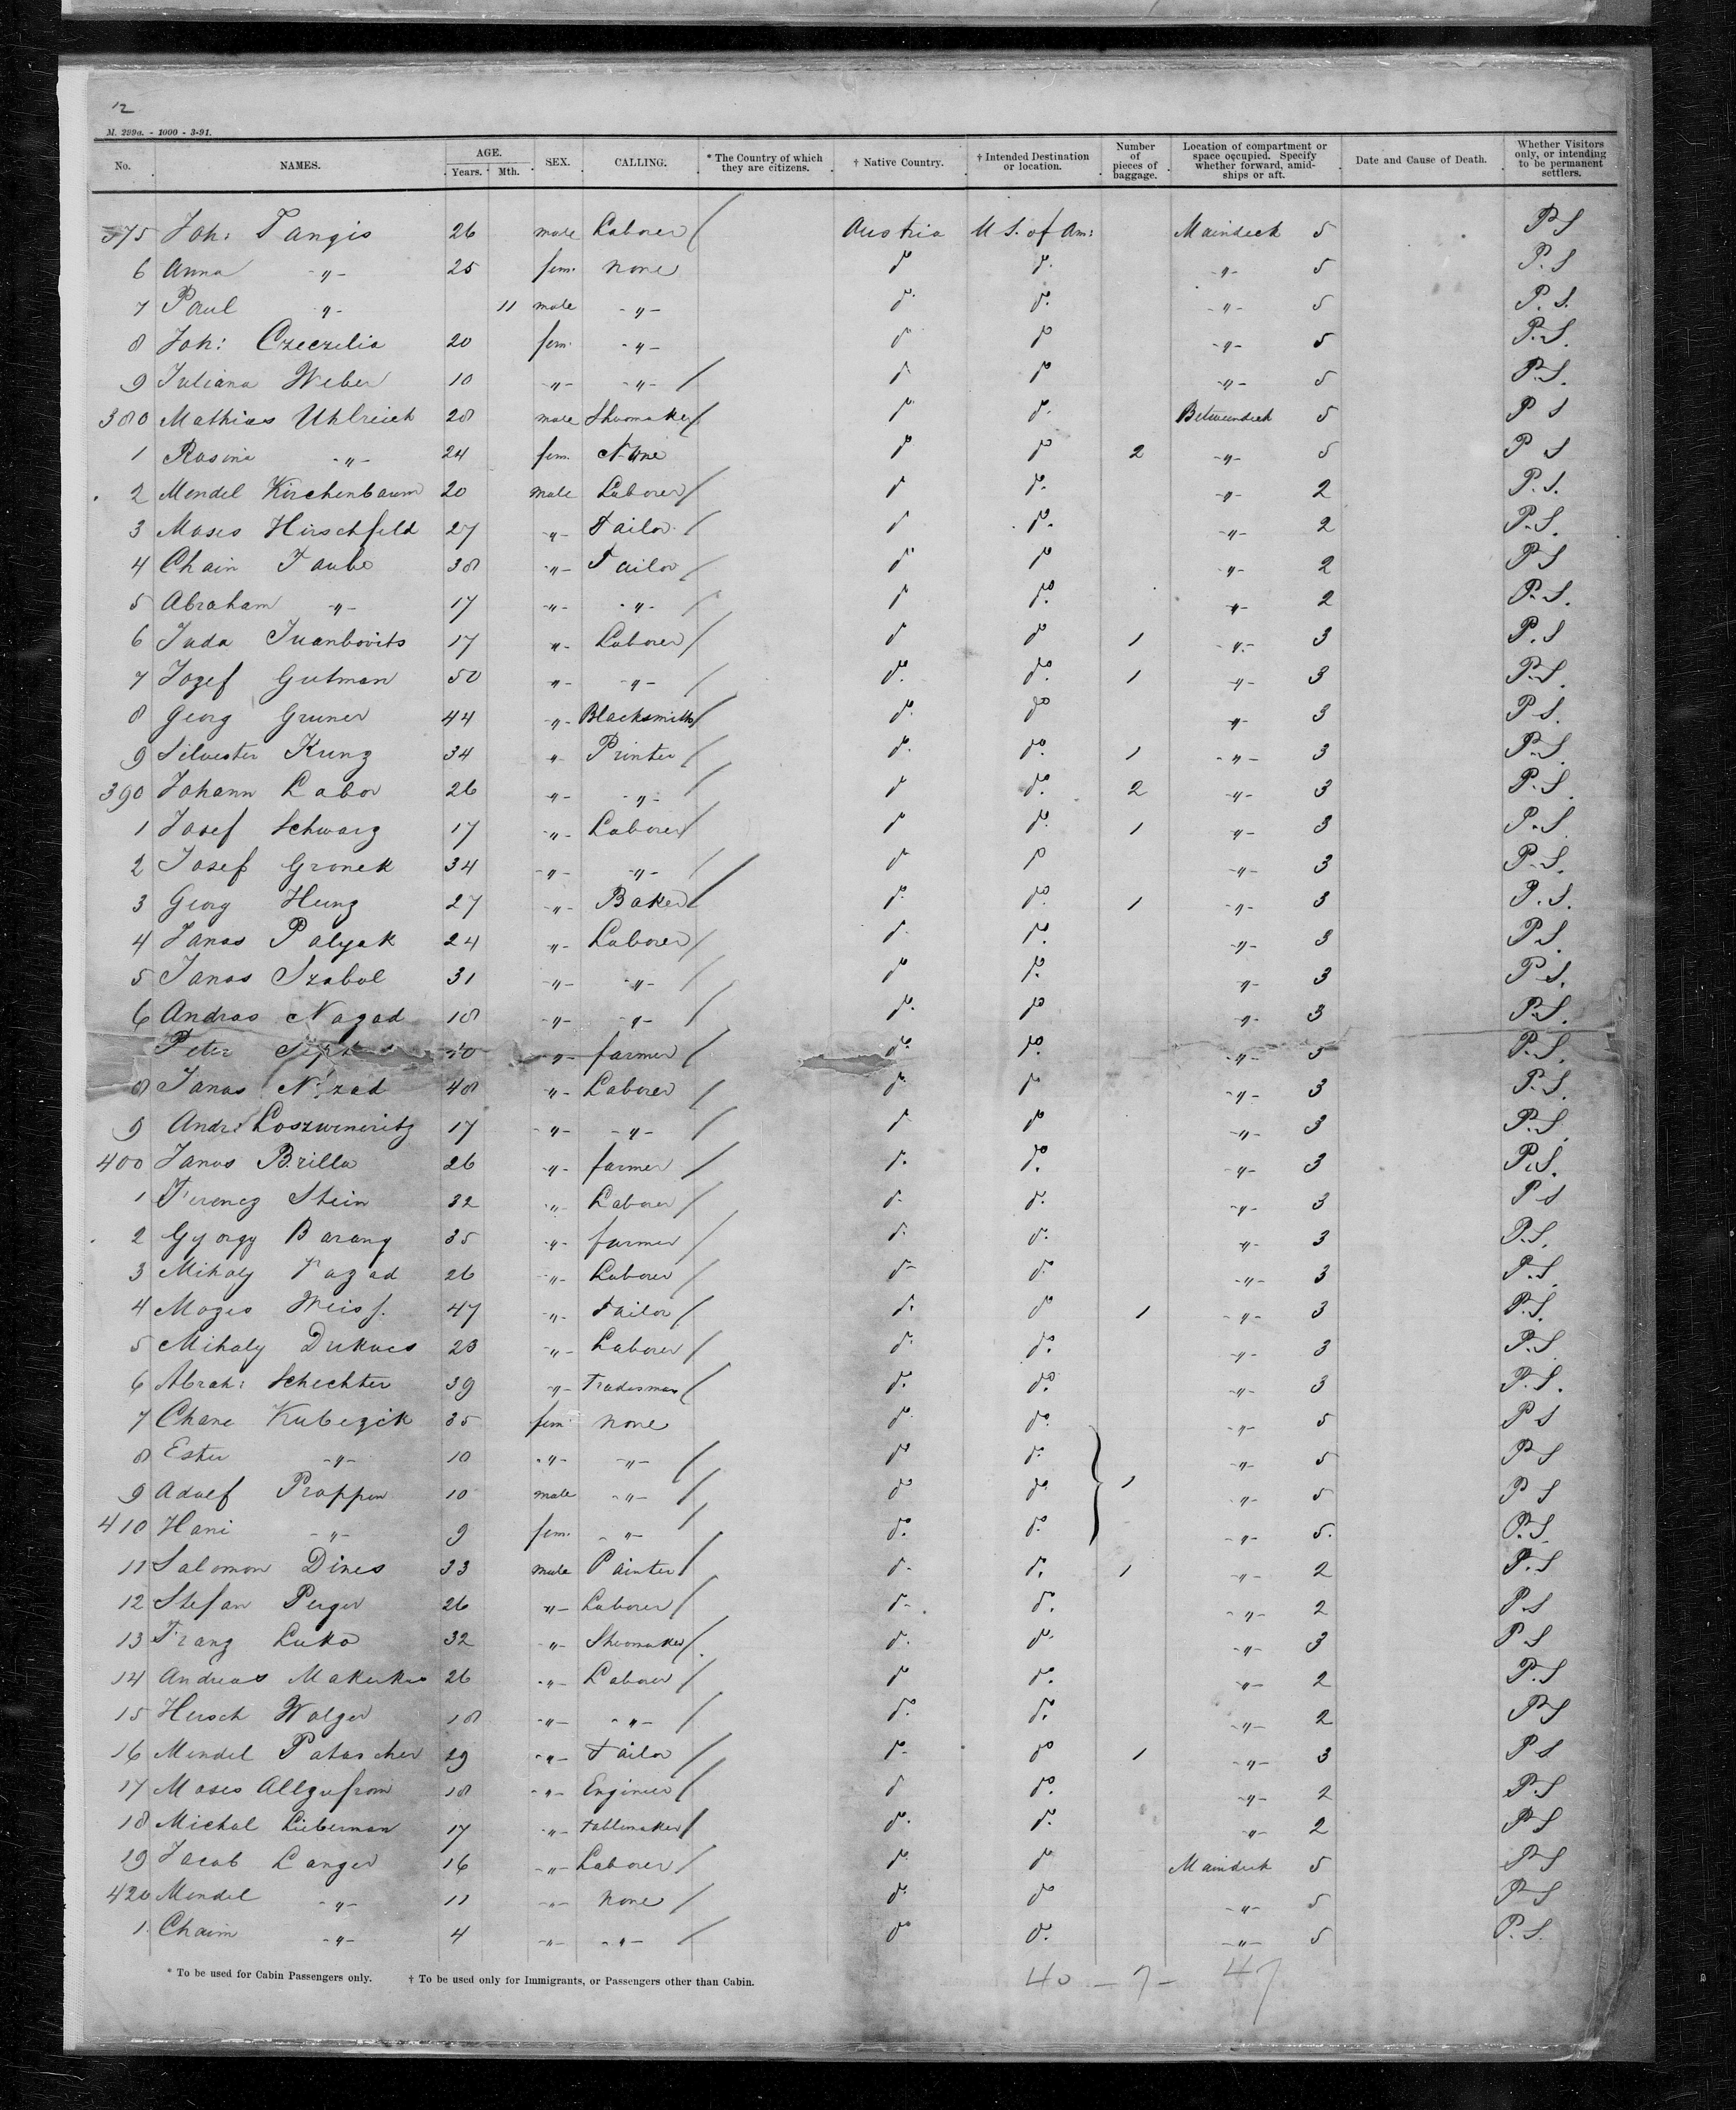 12
M. 299a. - 1000 - 3-91.
No. NAMES. AGE. Years. Mth. SEX. CALLING. * The Country of which they are citizens. † Native Country. † Intended Destination or location. Number of pieces of baggage. Location of compartment or space occupied. Specify whether forward, amidships or aft. Date and Cause of Death. Whether Visitors only, or intending to be permanent settlers.
375 Joh: Tangis 26 male Laborer / Austria U S. of Am: Maindeck 5 P S
6 Anna -"- 25 fem. none do do. -"- 5 P. S
7 Paul -"- 11 male -"- do. do. -"- 5 P. S.
8 Joh: Czeczelia 20 fem. -"- do do -"- 5 P. S.
9 Juliana Weber 10 -"- -"- / do do -"- 5 P. S.
380 Mathias Uhlreich 28 male Shoomaker / do do. Betweendeck 5 P S
1 Rosina -"- 24 fem. None do do 2 -"- 5 P S
2 Mendel Kirchenbaum 20 male Laborer / do do. -"- 2 P. S.
3 Moses Hirschfeld 27 -"- Tailor / do do. -"- 2 P. S.
4 Chain Taube 38 -"- Tailor / do do -"- 2 P S
5 Abraham -"- 17 -"- -"- / do do. -"- 2 P. S.
6 Juda Juanbovits 17 -"- Laborer / do do 1 -"- 3 P. S
7 Jozef Gutman 50 -"- -"- / do. do. 1 -"- 3 P. S.
8 Georg Gruner 44 -"- Blacksmith / do. do -"- 3 P S.
9 Silvester Kunz 34 -"- Printer / do. do. 1 -"- 3 P. S.
390 Johann Labor 26 -"- -"- / do do. 2 -"- 3 P. S.
1 Josef Schwarz 17 -"- Laborer / do do. 1 -"- 3 P. S.
2 Josef Gronek 34 -"- -"- / do do -"- 3 P. S.
3 Georg Heinz 27 -"- Baker / do. do. 1 -"- 3 P. S.
4 Janos Palyak 24 -"- Laborer / do. do. -"- 3 P. S.
5 Janos Szabol 31 -"- -"- / do do. -"- 3 P. S.
6 Andras Nagad 18 -"- -"- / do. do -"- 3 P. S.
Peter -"- farmer / do. do. -"- 3 P. S.
8 Janos 48 -"- Laborer / do. do -"- 3 P. S.
9 Andr: Loszwineritz 17 -"- -"- / do do -"- 3 P. S.
400 Janos Brilla 26 -"- farmer / do. do. -"- 3 P. S.
1 Ferencz Stein 32 -"- Laborer / do. do. -"- 3 P S
2 Gyorgy Barany 35 -"- farmer / do. do. -"- 3 P. S.
3 Mihaly 26 -"- Laborer / do. do. -"- 3 P. S.
4 Mozes Weiss. 47 -"- Tailor / do. do 1 -"- 3 P. S.
5 Mihaly Dukacs 23 -"- Laborer / do. do. -"- 3 P. S.
6 Abrah: Schechter 39 -"- Tradesman / do. do. -"- 3 P. S.
7 Chane Kubezick 35 fem. none do. do. -"- 5 P S
8 Ester -"- 10 -"- -"- / do do. -"- 5 P S
9 Adolf Proppen 10 male -"- / do do 1 -"- 5 P S
410 Hani -"- 9 fem. -"- / do. do. -"- 5. P. S.
11 Salomon Dines 33 male Painter / do. do. 1 -"- 2 P. S
12 Stefan Perger 26 -"- Laborer / do. do. -"- 2 P S
13 Franz Luko 32 -"- Shoomaker / do. do. -"- 3 P S
14 Andreas Makukas 26 -"- Laborer / do do. -"- 2 P. S
15 Hersch Wolger 18 -"- -"- / do. do. -"- 2 P S
16 Mendel Patascher 29 -"- Tailor / do. do 1 -"- 3 P S
17 Moses Allgufrom 18 -"- Engineer / do do. -"- 2 P. S
18 Michal Lieberman 17 -"- Tablemaker / do. do. -"- 2 P S
19 Jacob Langer 16 -"- Laborer / do. do Maindeck 5 P S
420 Mendel -"- 11 -"- none / do. do -"- 5 P S
1. Chaim -"- 4 -"- -"- / do do. -"- 5 P. S.
* To be used for Cabin Passengers only. † To be used only for Immigrants, or Passengers other than Cabin.
40 - 7 - 47